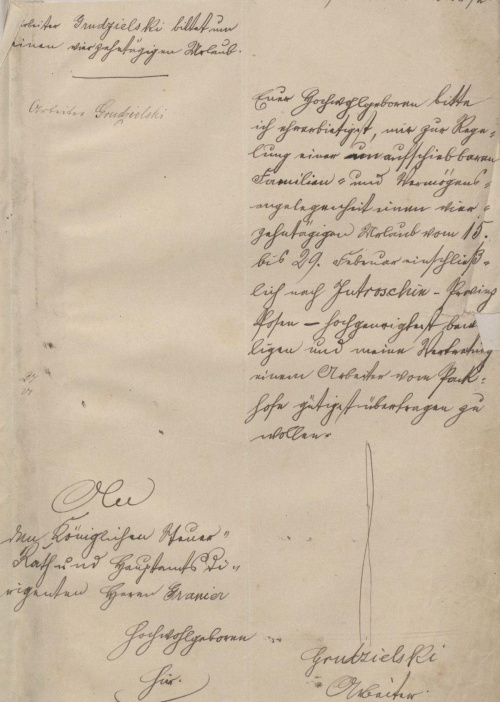 Arbeiter Grudzielski bittet um
einen vierzehntägigen Urlaub.
Arbeiter Grudzielski
Euer Hochwohlgeboren bitte
ich ehrerbietigst, mir zur Rege-
lung einer unaufschiebbaren
Familien- und Vermögens-
angelegenheit einen vier-
zehntägigen Urlaub vom 15.
bis 29. Februar einschließ-
lich nach Jutroschin - Provinz
Posen - hochgeneigtest bewil-
ligen und meine Vertretung
einem Arbeiter vom Pack-
hofe gütigst übertragen zu
wollen.
An
den Königlichen Steuer-
Rath und Hauptamts Di-
rigenten Herrn Granier
Hochwohlgeboren
hier.
Grudzielski
Arbeiter.